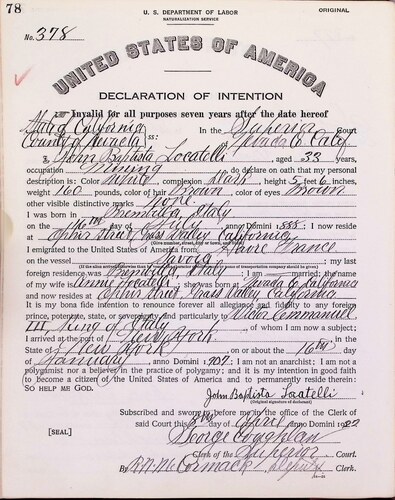 78
U. S. DEPARTMENT OF LABOR
NATURALIZATION SERVICE
ORIGINAL
No. 378
UNITED STATES OF AMERICA
DECLARATION OF INTENTION
Invalid for all purposes seven years after the date hereof
State of California
County of Nevada ss: In the Superior Court
Nevada Co. Calif
I, John Baptista Locatelli, aged 33 years,
occupation Mining, do declare on oath that my personal
description is: Color White, complexion Dark, height 5 feet 6 inches,
weight 160 pounds, color of hair Brown, color of eyes Brown
other visible distinctive marks None
I was born in Brembilla, Italy
on the day of July, anno Domini 1888; I now reside
at Ophir Street, Grass Valley, California
(Give number, street, city or town, and State)
I emigrated to the United States of America from Havre France
on the vessel Savoia; my last
(If the alien arrived otherwise than by vessel, the character of conveyance or name of transportation company should be given)
foreign residence was Brembilla, Italy; I am married; the name
of my wife is Annie Locatelli; she was born at Nevada Co. California
and now resides at Ophir Street Grass Valley, California
It is my bona fide intention to renounce forever all allegiance and fidelity to any foreign
prince, potentate, state, or sovereignty, and particularly to Victor Emmanuel
III King of Italy, of whom I am now a subject;
I arrived at the port of New York, in the
State of New York, on or about the 16th day
of, anno Domini 1907; I am not an anarchist; I am not a
polygamist nor a believer in the practice of polygamy; and it is my intention in good faith
to become a citizen of the United States of America and to permanently reside therein:
SO HELP ME GOD.
John Baptista Locatelli
(Original signature of declarant)
Subscribed and sworn to before me in the office of the Clerk of
said Court this day of April, anno Domini 1922
[SEAL]
George Coughlan
Clerk of the Superior Court.
By R. N. McCormack Deputy Clerk.